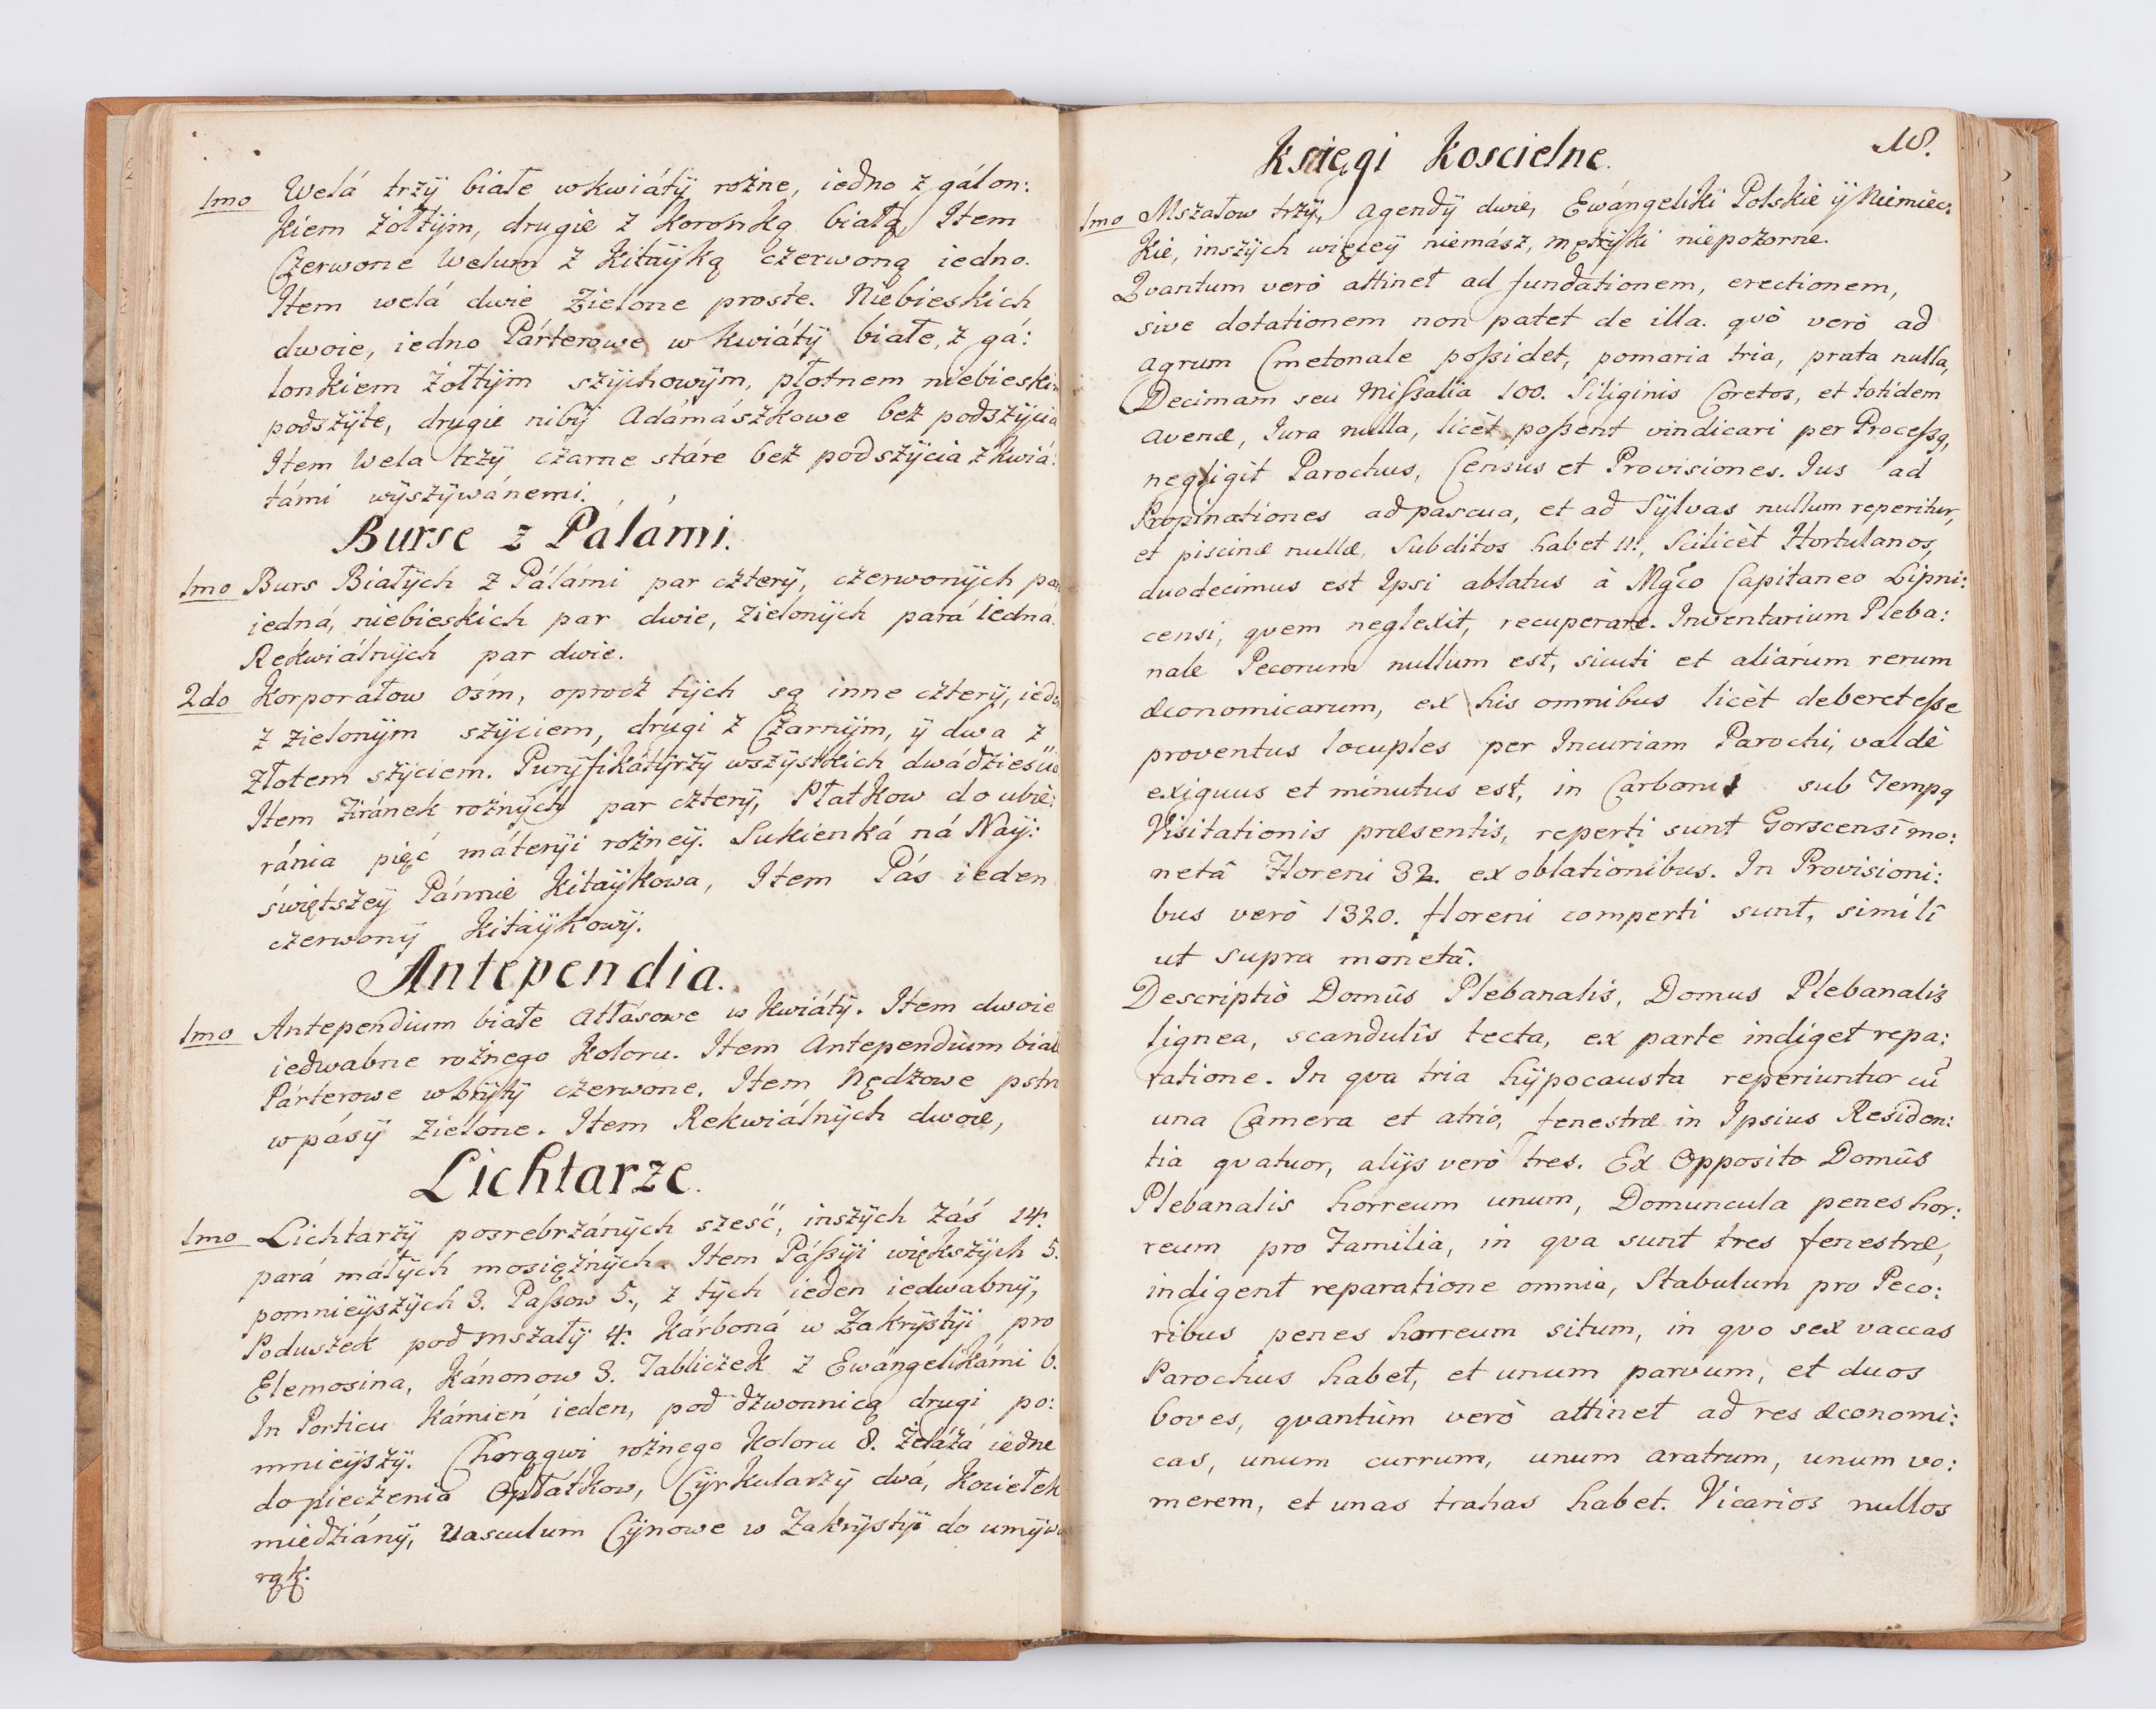 1mo Welá trzÿ białe w kwiátÿ rożne, iedno z gálon:
kiem żołtÿm, drugie z koronką białą, Item
Czerwone Welum z kitaÿką czerwoną iedno.
Item welá dwie Zielone proste. Niebieskich
dwoie, iedno Párterowe w kwiátÿ białe, z gá:
lonkiem żołtÿm szÿchowÿm, płotnem niebieskim
podszÿte, drugie nibÿ Adámászkowe bez podszÿcia
Item Wela trzÿ czarne stáre bez podszÿcia z kwiá:
támi wÿszÿwánemi.
Burse z Pálámi.
1mo Burs Białÿch z Pálámi par czterÿ, czerwonÿch par
iedná, niebieskich par dwie, Zielonÿch pará iedná.
Rekwiálnÿch par dwie.
2do Korporałow ośm, oprocz tÿch są inne czterÿ, ied:
z zielonÿm szÿciem, drugi z Czarnÿm, ÿ dwa z
złotem szÿciem. Purÿfikátÿrzÿ wszÿstkich dwádzieś
Item Firánek rożnÿch par czterÿ, Płatkow do ubie:
ránia pięć máterÿi rożneÿ. Sukienká ná Naÿ:
świętszeÿ Pánnie kitaÿkowa, Item Pás ieden
czerwonÿ kitaÿkowÿ.
Antependia.
1mo Antependium białe Atłásowe w kwiátÿ. Item dwoie
iedwabne rożnego koloru. Item Antependium biał
Párterowe w brÿtÿ czerwone. Item Nędzowe pstr
w pásÿ Zielone. Item Rekwiálnÿch dwoie,
Lichtarze.
1mo Lichtarzÿ posrebrzánÿch sześć, inszÿch záś 14.
pará máłÿch mosiężnÿch. Item Páßÿi większÿch 5.
pomnieÿszÿch 3. Paßow 5., z tÿch ieden iedwabnÿ,
Poduszek pod mszałÿ 4. Kárboná w Zakrÿstÿi pro
Elemosina, Kánonow 3. Tabliczek z Ewángelikámi 6.
In Porticu Kámień ieden, pod dzwonnicą drugi po:
mnieÿszÿ. Chorągwi rożnego koloru 8. Żeláżá iedne
do pieczenia Opłátkow, Cÿrkularzÿ dwá, Kociełek
miedziánÿ, Vasculum Cÿnowe w Zakrÿstÿi do umÿw
rąk.
18.
Księgi Koscielne.
1mo Mszałow trzÿ, Agendÿ dwie, Ewángeliki Polskie ÿ Niemiec:
kie, inszÿch więceÿ niemász, metrÿki niepożorne.
Qvantum verò attinet ad fundationem, erectionem,
sive dotationem non patet de illa. qvò verò ad
agrum Cmetonale poßidet, pomaria tria, prata nulla,
Decimam seu Mißalia 100. Siliginis Coretos, et totidem
avenæ, Iura nulla, licèt poßent vindicari per Proceßq,
negligit Parochus, Census et Provisiones. Ius ad
Propinationes ad pascua, et ad Sÿlvas nullum reperitur,
et piscinæ nullæ, Subditos habet 11., Scilicèt Hortulanos,
duodecimus est Ipsi ablatus à Mgco Capitaneo Lipni:
censi, qvem neglexit, recuperare. Inventarium Pleba:
nale Pecorum nullum est, sicuti et aliarum rerum
æconomicarum, ex his omnibus licèt deberet eße
proventus locuples per Incuriam Parochi, valdè
exiguus et minutus est, in Carbonis sub Tempq
Visitationis præsentis, reperti sunt Gorscensi mo:
netâ Floreni 32. ex oblationibus. In Provisioni:
bus verò 1320. floreni comperti sunt, simili
ut supra monetâ.
Descriptiò Domûs Plebanalis, Domus Plebanalis
lignea, scandulis tecta, ex parte indiget repa:
ratione. In qva tria hÿpocausta reperiuntur cũ
una Camera et atrio, fenestræ in Ipsius Residen:
tia qvatuor, alijs verò tres. Ex Opposito Domûs
Plebanalis horreum unum, Domuncula penes hor:
reum pro Familia, in qva sunt tres fenestræ,
indigent reparatione omnia, Stabulum pro Peco:
ribus penes horreum situm, in qvo sex vaccas
Parochus habet, et unum parvum, et duos
boves, qvantùm verò attinet ad res æconomi:
cas, unum currum, unum aratrum, unum vo:
merem, et unas trahas habet. Vicarios nullos